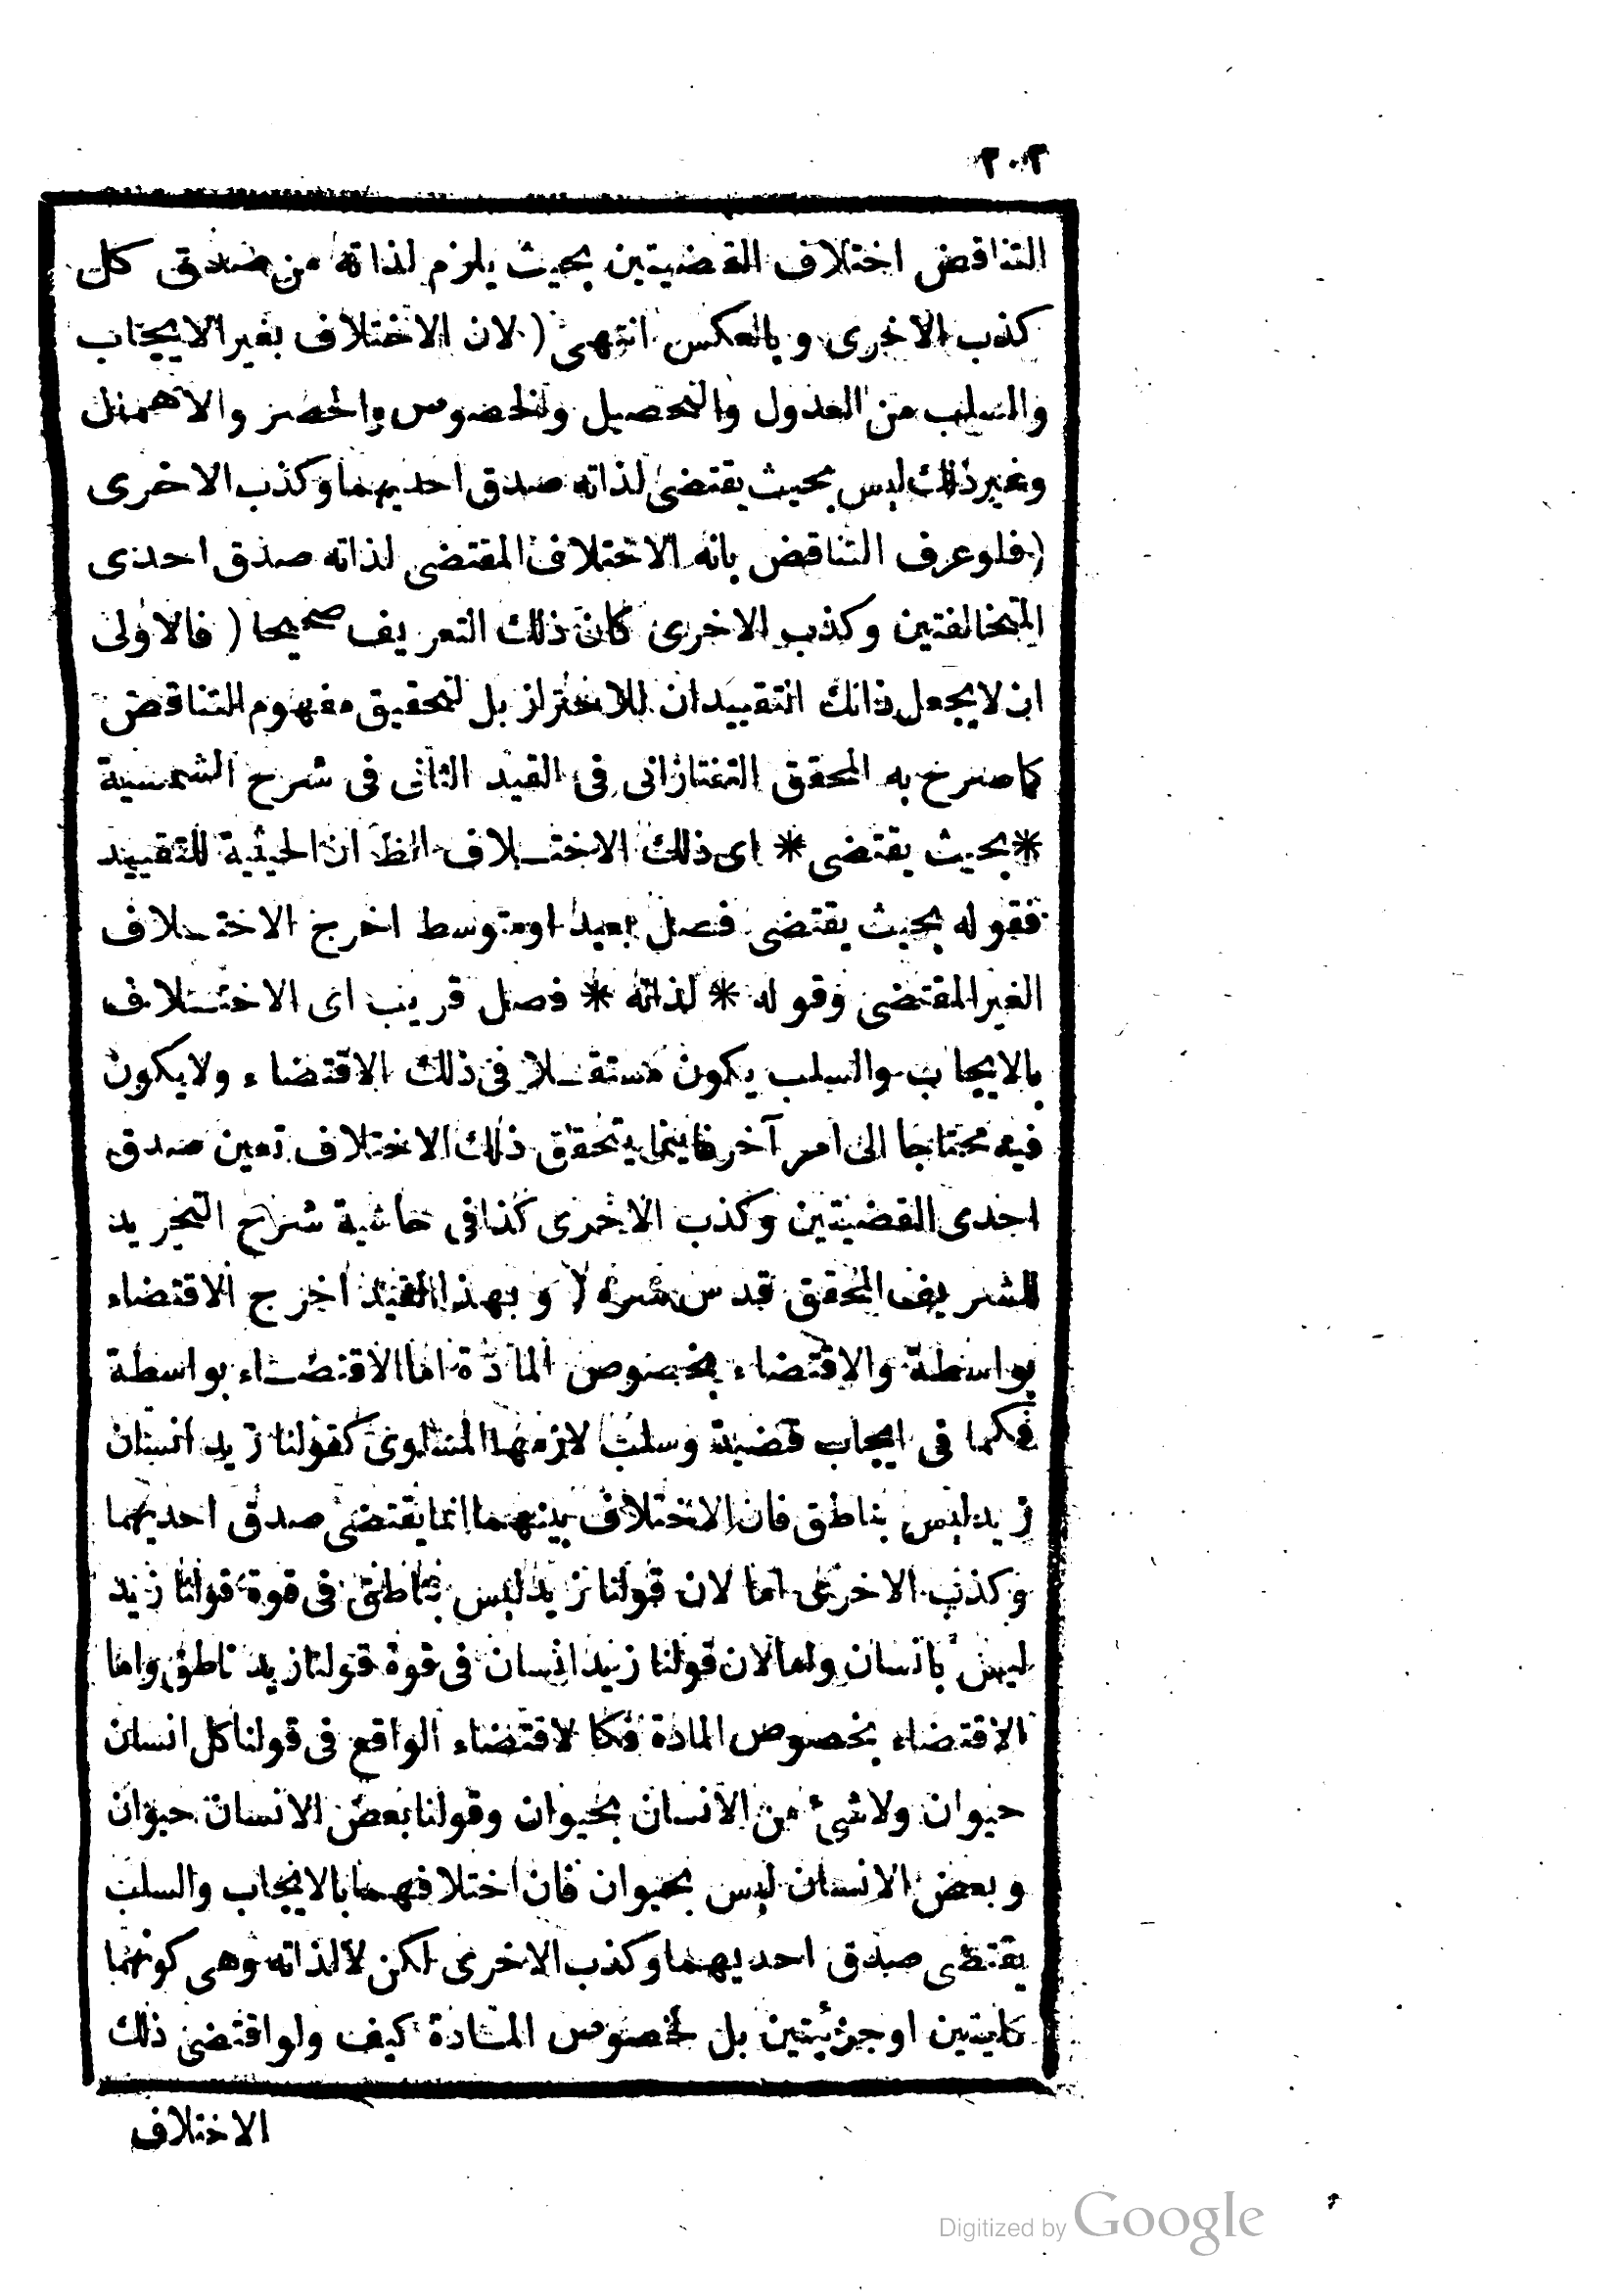 ٢٠٢
التناقض اختلاف القضيتين بحيث يلزم لذاته من صدق كل
كذب الاخرى وبالعكس انتهى ( لان الاختلاف بغير الايجاب
والسلب من العدول والتحصيل والخصوص والحصر والاهمال
وغير ذلك ليس بحيث يقتضى لذاته صدق احديهما وكذب الاخرى
( فلو عرف التناقض بانه الاختلاف المقتضى لذاته صدق احدى
المتخالفتين وكذب الاخرى كان ذلك التعريف صحيحا ( فالاولى
ان لا يجعل ذانك التقييدان للاحتراز بل لتحقيق مفهوم التناقض
كما صرح به المحقق التفتازانى فى القيد الثانى فى شرح الشمسية
* بحيث يقتضى * اى ذلك الاختلاف الظ ان الحيثية للتقييد
فقوله بحيث يقتضى فصل بعيد او متوسط اخرج الاختلاف
الغير المقتضى وقوله * لذاته * فصل قريب اى الاختلاف
بالايجاب والسلب يكون مستقلا فى ذلك الاقتضاء ولا يكون
فيه محتاجا الى امر آخر فاينما يتحقق ذلك الاختلاف تعين صدق
احدى القضيتين وكذب الاخرى كذا فى حاشية شرح التجريد
للشريف المحقق قدس سره ( وبهذا القيد اخرج الاقتضاء
بواسطة والاقتضاء بخصوص المادة اما الاقتضاء بواسطة
فكما فى ايجاب قضية وسلب لازمها المساوى كقولنا زيد انسان
زيد ليس بناطق فان الاختلاف بينهما انما يقتضى صدق احديهما
وكذب الاخرى اما لان قولنا زيد ليس بناطق فى قوة قولنا زيد
ليس بانسان واما لان قولنا زيد انسان فى قوة قولنا زيد ناطق واما
الاقتضاء بخصوص المادة فكالاقتضاء الواقع فى قولنا كل انسان
حيوان ولا شئ من الانسان بحيوان وقولنا بعض الانسان حيوان
وبعض الانسان ليس بحيوان فان اختلافهما بالايجاب والسلب
يقتضى صدق احديهما وكذب الاخرى لكن لا لذاته وهى كونهما
كليتين او جزئيتين بل لخصوص المادة كيف ولو اقتضى ذلك
الاختلاف
Digitized by Google